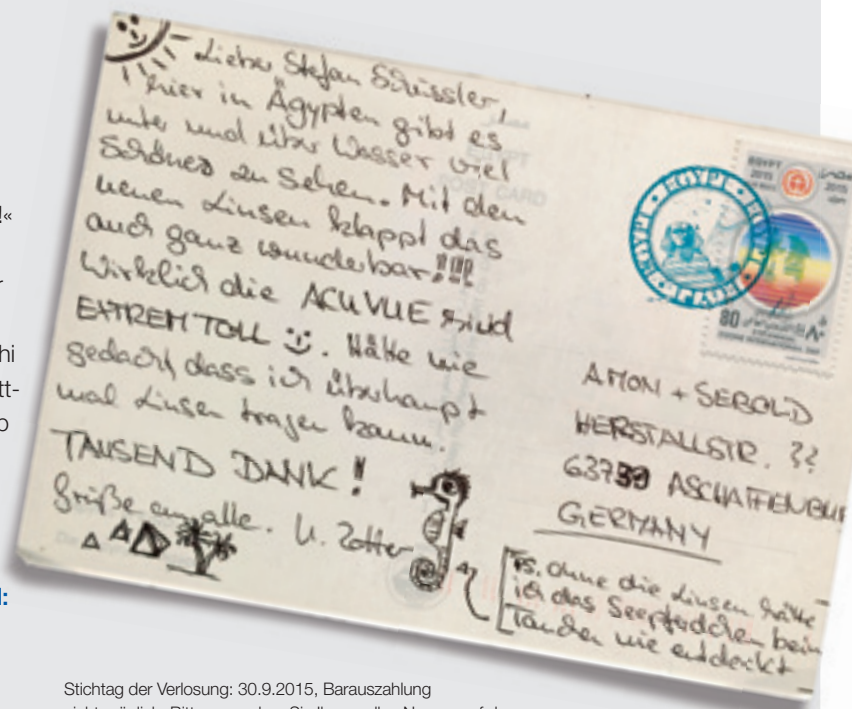 Lieber Stefan Schüssler,
hier in Ägypten gibt es
unter und über Wasser viel
Schönes zu sehen. Mit den
neuen Linsen klappt das
auch ganz wunderbar!!!!
Wirklich die ACUVUE sind
EXTREM TOLL. Hätte nie
gedacht dass ich überhaupt
mal Linsen tragen kann.
TAUSEND DANK!
Grüße an alle. U. Zotter
EGYPT
POST CARD
EGYPT · EGYPT · EGYPT · EGYPT
EGYPT
2015
2015
80
AMON + SEBOLD
HERSTALLSTR. ??
63739 ASCHAFFENBU
GERMANY
PS. Ohne die Linsen hätte
ich das Seepferdchen beim
Tauchen nie entdeckt
!«
r
hi
tt-
o
:
Stichtag der Verlosung: 30.9.2015, Barauszahlung